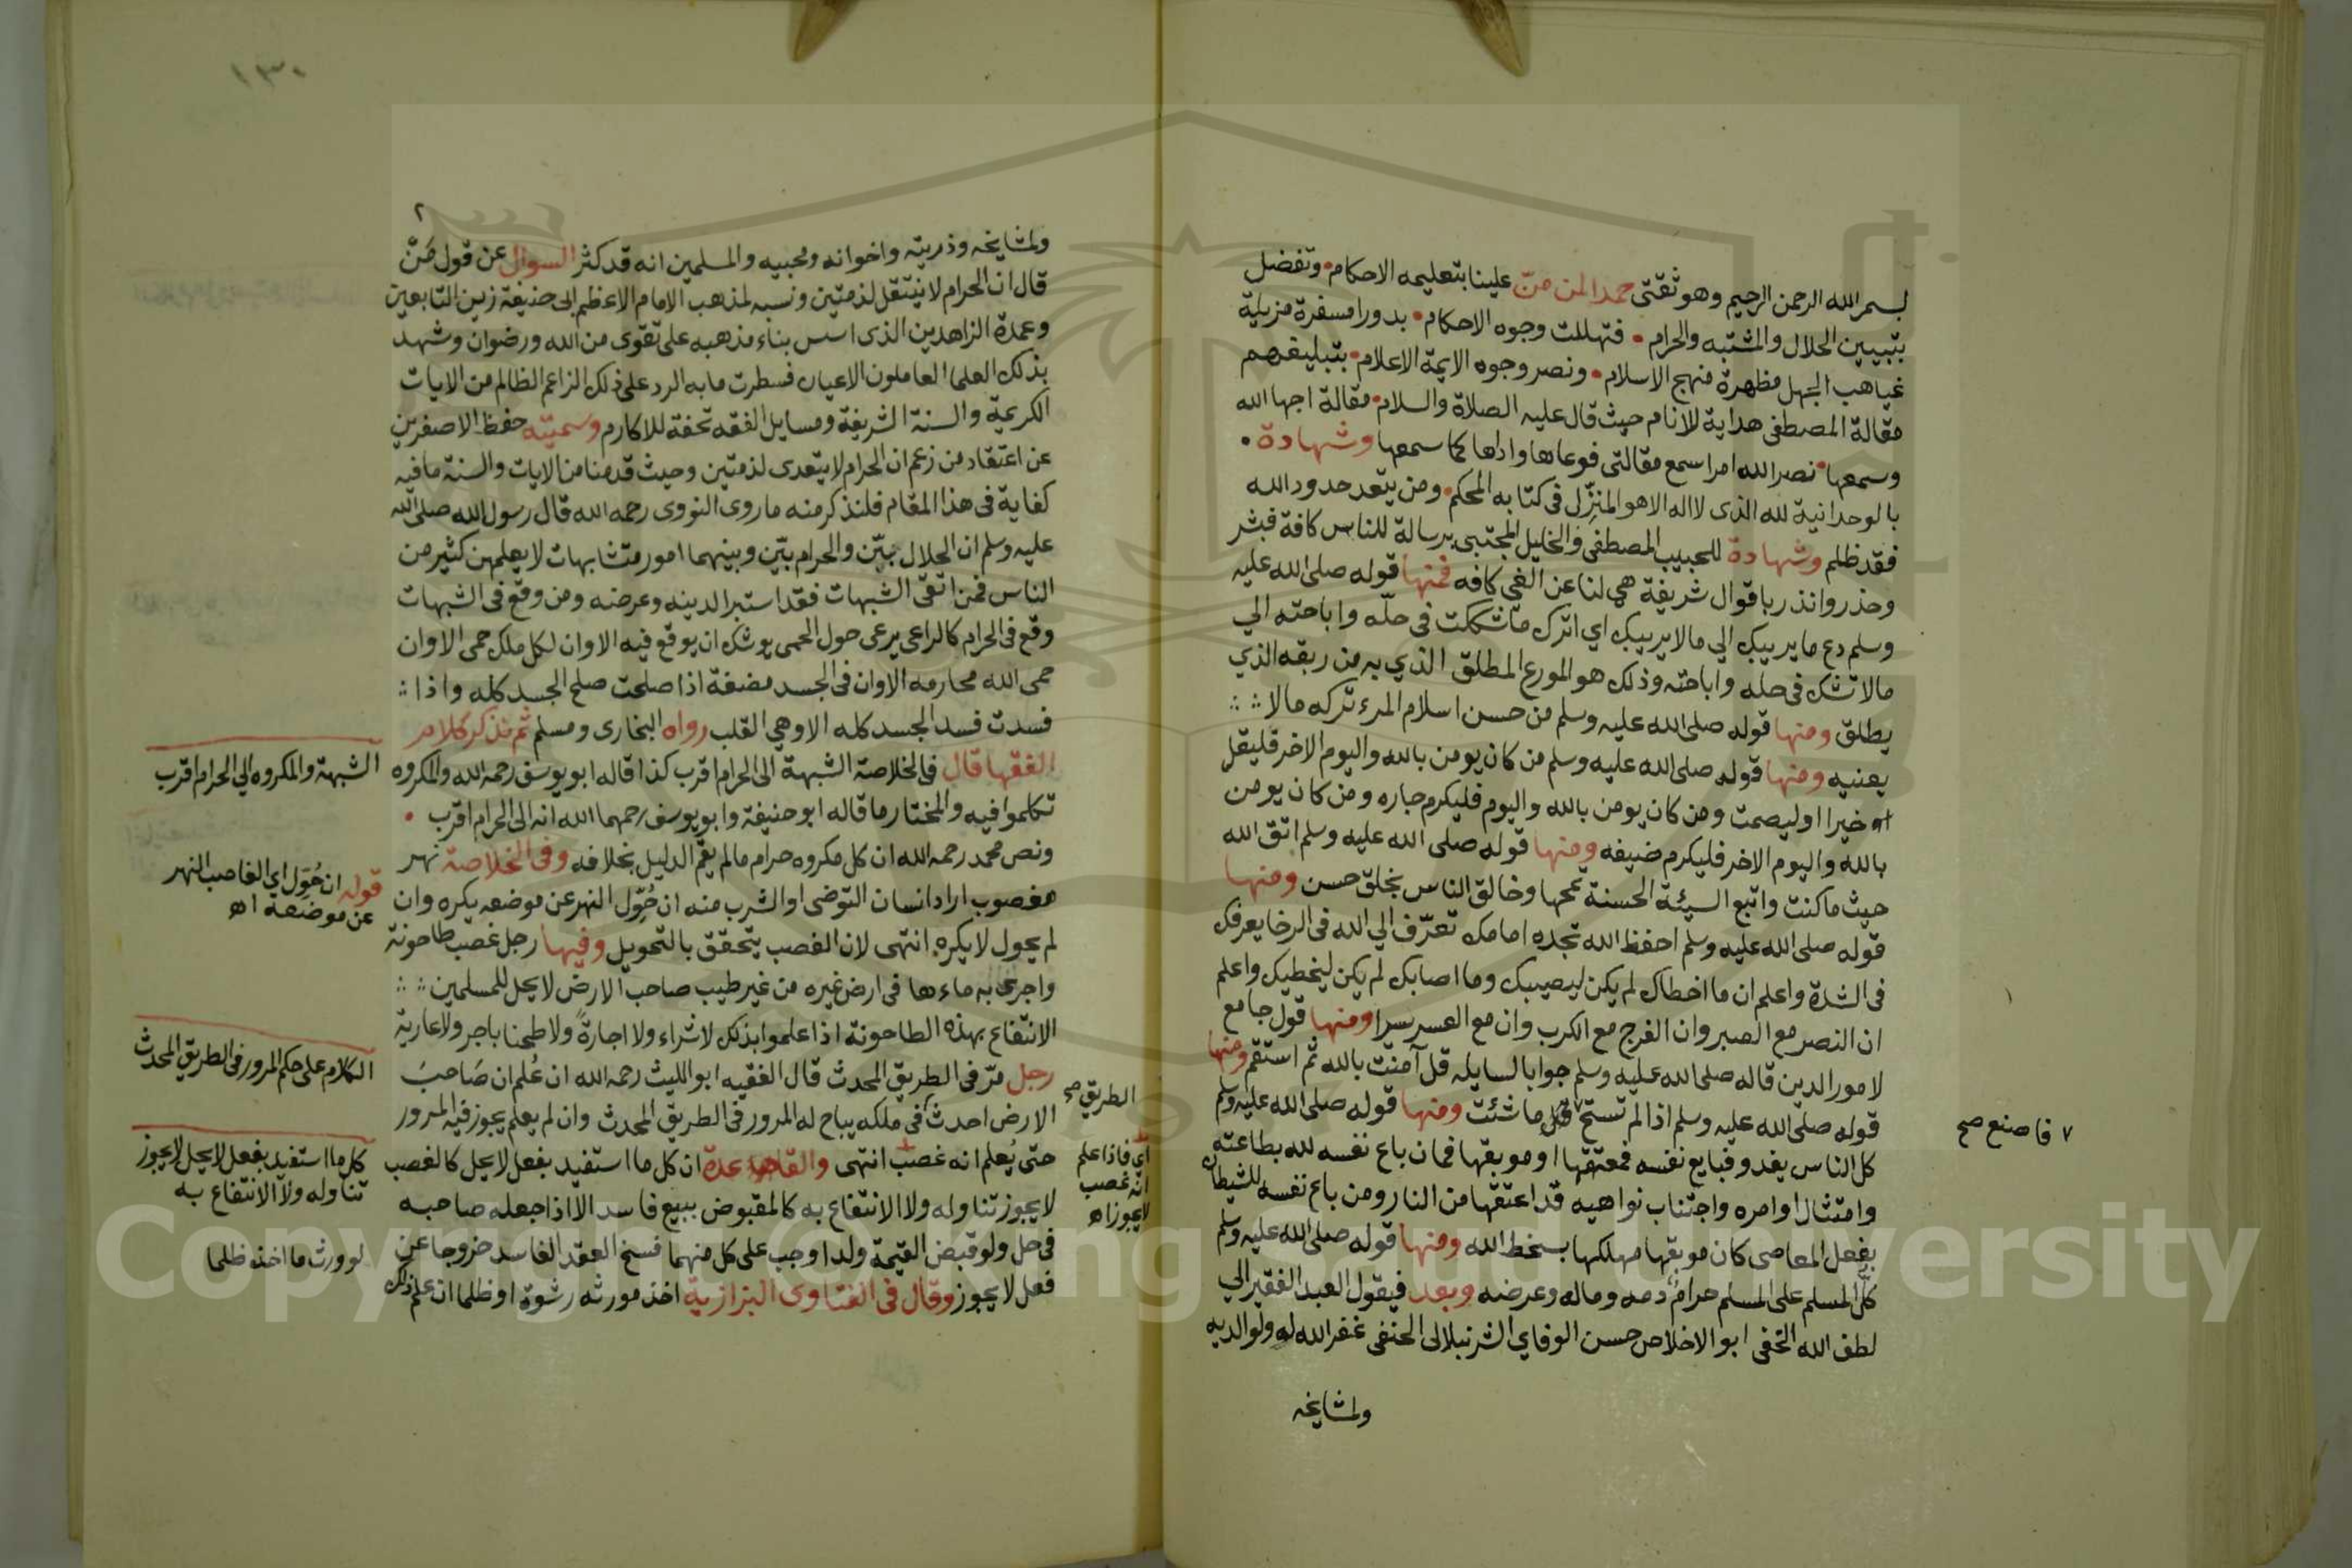 بسم الله الرحمن الرحيم وهو ثقتى حمدا لمن منّ علينا بتعليمه الاحكام وتفضل
بتبيين الحلال والمشتبه والحرام فتهللت وجوه الاحكام بدورا مسفرة مزيلة
غياهب الجهل مظهرة منهج الاسلام ونصر وجوه الايمة الاعلام بتبليغهم
مقالة المصطفى هداية للانام حيث قال عليه الصلاة والسلام مقالة اجها الله
وسمعها نصر الله امرا سمع مقالتى فوعاها واداها كما سمعها وشهادة
بالوحدانية لله الذى لا اله الا هو المنزل فى كتابه المحكم ومن يتعد حدود الله
فقد ظلم وشهادة للحبيب المصطفى والخليل المجتبى برسالة للناس كافة فبشر
وحذر وانذر باقوال شريفة هى لنا عن الغى كافه فمنها قوله صلى الله عليه
وسلم دع ما يريبك الي ما لا يريبك اي اترك ما شككت فى حلّه واباحته الي
ما لا تشك فى حله واباحته وذلك هو الورع المطلق الذي به من ربقه الذي
يطلق ومنها قوله صلى الله عليه وسلم من حسن اسلام المرء تركه ما لا
يعنيه ومنها قوله صلى الله عليه وسلم من كان يومن بالله واليوم الاخر فليقل
خيرا او ليصمت ومن كان يومن بالله واليوم فليكرم جاره ومن كان يومن
بالله واليوم الاخر فليكرم ضيفه ومنها قوله صلى الله عليه وسلم اتق الله
حيث ما كنت واتبع السيئة الحسنة تمحها وخالق الناس بخلق حسن ومنها
قوله صلى الله عليه وسلم احفظ الله تجده امامك تعرّف الي الله فى الرخا يعرفك
فى الشدة واعلم ان ما اخطاك لم يكن ليصيبك وما اصابك لم يكن ليخطيك واعلم
ان النصر مع الصبر وان الفرج مع الكرب وان مع العسر يسرا ومنها قول جامع
لامور الدين قاله صلى الله عليه وسلم جوابا لسايله قل آمنت بالله ثم استقم ومنها
قوله صلى الله عليه وسلم اذا لم تستح ما شئت ومنها قوله صلى الله عليه وسلم
٧ فاصنع صح
كل الناس يغدو فبايع نفسه فمعتقها او موبقها فمان باع نفسه لله بطاعته
وامتثال اوامره واجتناب نواهيه قد اعتقها من النار ومن باع نفسه للشيطان
بفعل المعاصى كان موبقها مهلكها بسخط الله ومنها قوله صلى الله عليه وسلم
كلّ المسلم على المسلم حرام دمه وماله وعرضه وبعد فيقول العبد الفقير الي
لطف الله الخفى ابو الاخلاص حسن الوفاي الشرنبلالى الحنفى غفر الله له ولوالديه
ولمشايخه
١٣٠
٢
ولمشايخه وذريته واخوانه ومحبيه والمسلمين انه قد كثر السوال عن قول مَنْ
قال ان الحرام لا ينتقل لذمتين ونسبه لمذهب الامام الاعظم ابى حنيفة زين التابعين
وعمدة الزاهدين الذى اسس بناء مذهبه على تقوى من الله ورضوان وشهد
بذلك العلما العاملون الاعيان فسطرت ما به الرد على ذلك الزاعم الظالم من الايات
الكريمة والسنة الشريفة ومسايل الفقه تحفة للاكارم وسميته حفظ الاصغرين
عن اعتقاد من زعم ان الحرام لا يتعدى لذمتين وحيث قدمنا من الايات والسنة ما فيه
كفاية فى هذا المقام فلنذكر منه ما روى النووى رحمه الله قال رسول الله صلى الله
عليه وسلم ان الحلال بيّن والحرام بيّن وبينهما امور متشابهات لا يعلمهن كثير من
الناس فمن اتقى الشبهات فقد استبرا لدينه وعرضه ومن وقع فى الشبهات
وقع فى الحرام كالراعى يرعى حول الحمى يوشك ان يوقع فيه الا وان لكل ملك حمى الا وان
حمى الله محارمه الا وان فى الجسد مضغة اذا صلحت صلح الجسد كله واذا
فسدت فسد الجسد كله الا وهي القلب رواه البخارى ومسلم ثم نذكر كلام
الفقها قال فى الخلاصة الشبهة الى الحرام اقرب كذا قاله ابو يوسف رحمه الله والمكروه
الشبهة والمكروه الي الحرام اقرب
تكلموا فيه والمختار ما قاله ابو حنيفة وابو يوسف رحمهما الله انه الى الحرام اقرب
ونص محمد رحمه الله ان كل مكروه حرام ما لم يقم الدليل بخلافه وفى الخلاصة نهر
قوله ان حُوّل اي الغاصب النهر
عن موضعه اه
مغصوب اراد انسان التوضى او الشرب منه ان حُوّل النهر عن موضعه يكره وان
لم يحول لا يكره انتهى لان الغصب يتحقق بالتحويل وفيها رجل غصب طاحونة
واجرى به ماءها فى ارض غيره من غير طيب صاحب الارض لا يحل للمسلمين
الانتفاع بهذه الطاحونة اذا علموا بذلك لا شراء ولا اجارة ولا طحنا باجر ولا عارية
الكلام على حكم المرور فى الطريق المحدث
رجل مرّ فى الطريق المحدث قال الفقيه ابو الليث رحمه الله ان عُلم ان صَاحبَ
الطريق صح
الارض احدث فى ملكه يباح له المرور فى الطريق المحدث وان لم يعلم يجوز فيه المرور
حتى يُعلم انه غصب انتهى والقاعدة ان كل ما استفيد بفعل لا يحل كالغصب
اي فاذا علم
انه غصب
لا يجوز اه
كل ما استفيد بفعل لا يحل لا يجوز
تناوله ولا الانتفاع به
لا يجوز تناوله ولا الانتفاع به كالمقبوض ببيع فاسد الا اذا جعله صاحبه
فى حل ولو قبض القيمة ولذا وجب على كل منهما فسخ العقد الفاسد خروجا عن
لو ورث ما اخذه ظلما
فعل لا يجوز وقال فى الفتاوى البزازية اخذ مورثه رشوة او ظلما ان علم ذلك
Copyright © King Saud University